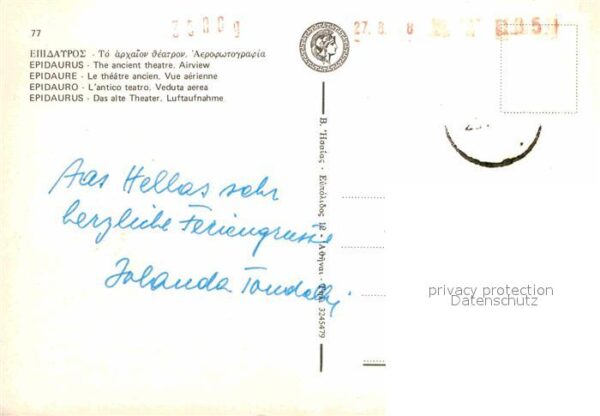 77
ΕΠΙΔΑΥΡΟΣ - Τό ἀρχαῖον θέατρον. Ἀεροφωτογραφία
EPIDAURUS - The ancient theatre. Airview
EPIDAURE - Le théâtre ancien. Vue aérienne
EPIDAURO - L'antico teatro. Veduta aerea
EPIDAURUS - Das alte Theater. Luftaufnahme
Aas Hellas sehr
herzliche Feriengrüsse
Jolanda
Εὐπόλιδος 12 - Ἀθῆναι - Τηλ. 3245479
privacy protection
Datenschutz